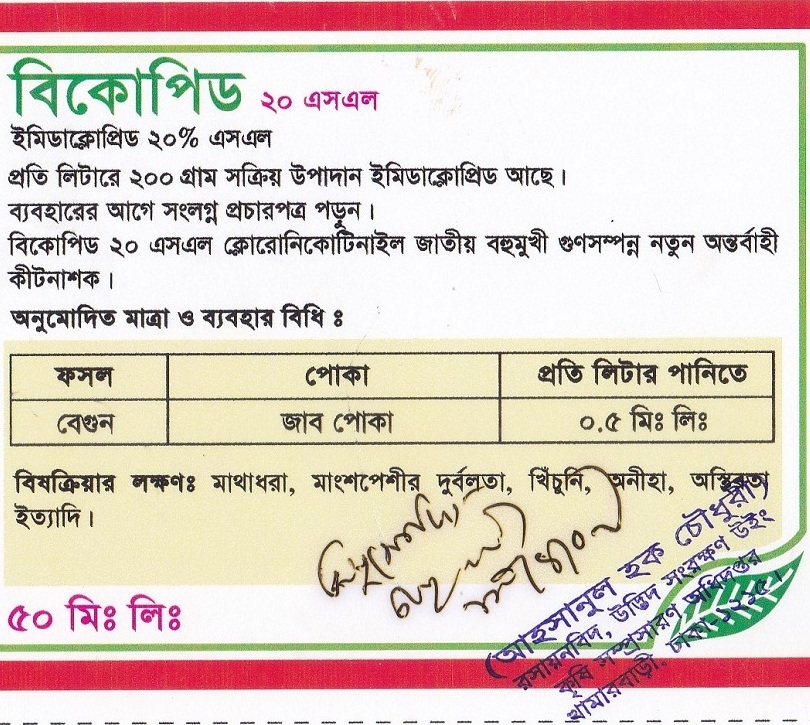 বিকোপিড ২০ এসএল
ইমিডাক্লোপ্রিড ২০% এসএল
প্রতি লিটারে ২০০ গ্রাম সক্রিয় উপাদান ইমিডাক্লোপ্রিড আছে।
ব্যবহারের আগে সংলগ্ন প্রচারপত্র পড়ুন।
বিকোপিড ২০ এসএল ক্লোরোনিকোটিনাইল জাতীয় বহুমুখী গুণসম্পন্ন নতুন অন্তর্বাহী
কীটনাশক।
অনুমোদিত মাত্রা ও ব্যবহার বিধি ঃ
ফসল পোকা প্রতি লিটার পানিতে
বেগুন জাব পোকা ০.৫ মিঃ লিঃ
বিষক্রিয়ার লক্ষণঃ মাথাধরা, মাংশপেশীর দুর্বলতা, খিঁচুনি, অনীহা, অস্থিরতা
ইত্যাদি।
৫০ মিঃ লিঃ
(আহসানুল হক চৌধুরী)
রসায়নবিদ, উদ্ভিদ সংরক্ষণ উইং
কৃষি সম্প্রসারণ অধিদপ্তর
খামারবাড়ী, ঢাকা-১২১৫।